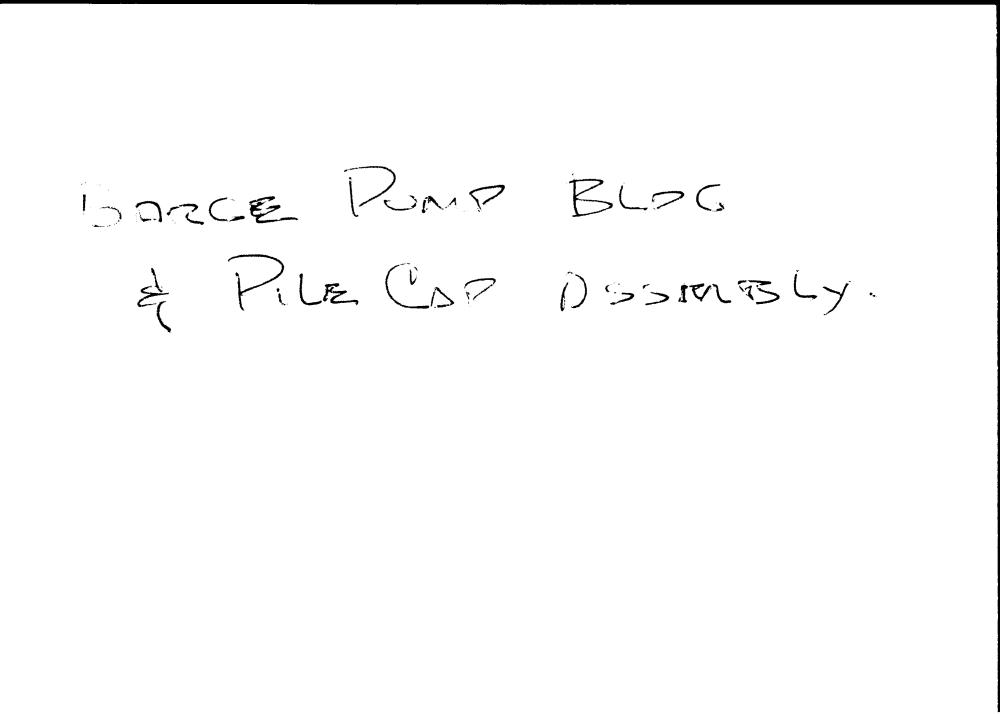 BARGE PUMP BLDG
& PILE CAP ASSEMBLY.